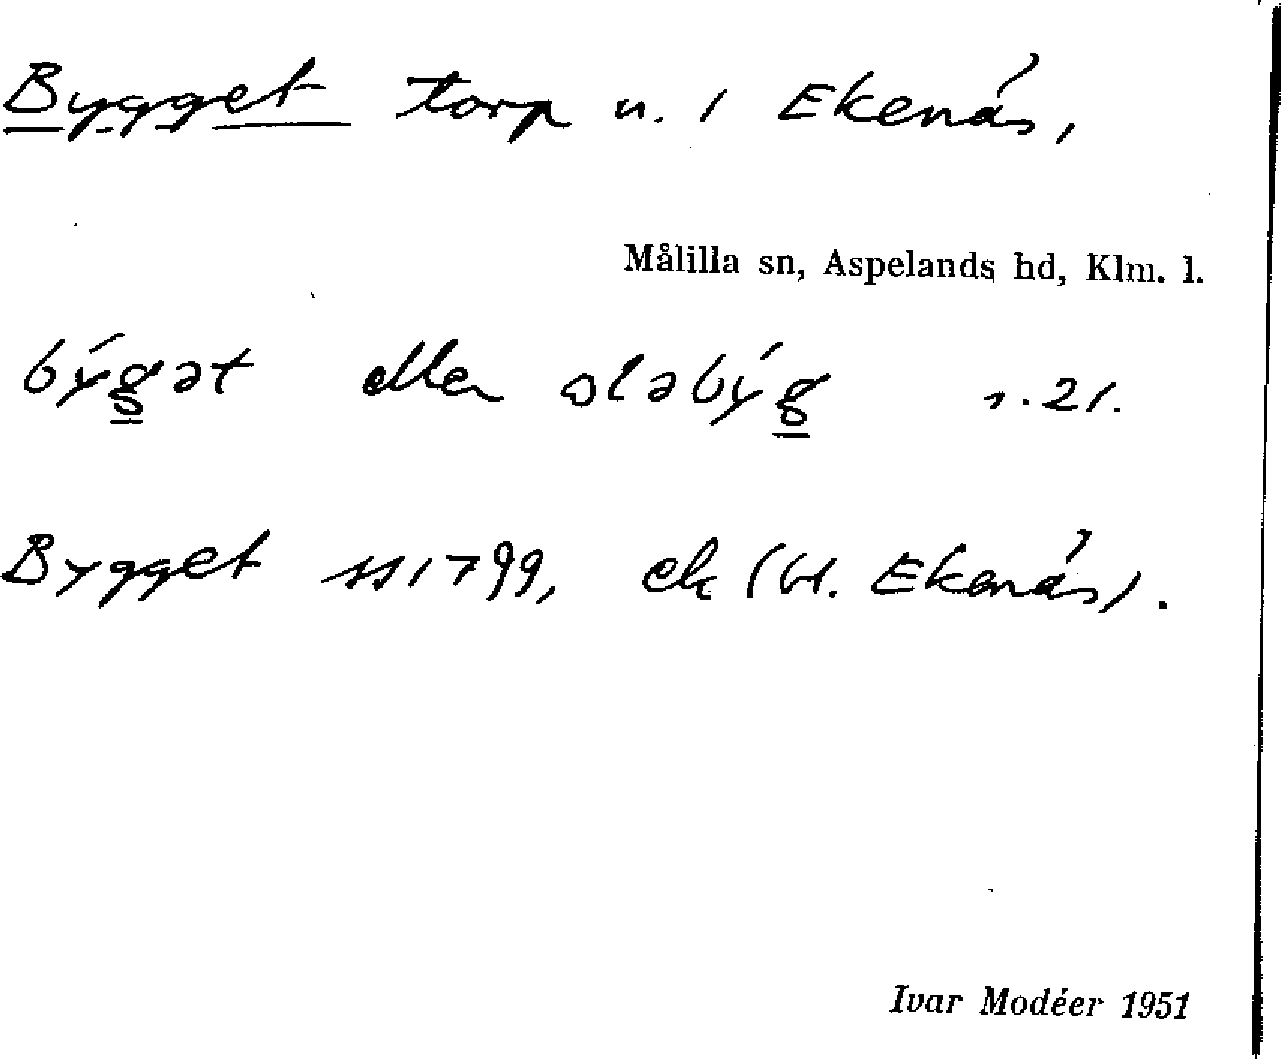 Bygget torp u. / Ekenäs,
Målilla sn, Aspelands hd, Klm. l.
býgət eller ɷləbýg s. 21.
Bygget 1799, ek (bl. Ekenäs).
Ivar Modéer 1951